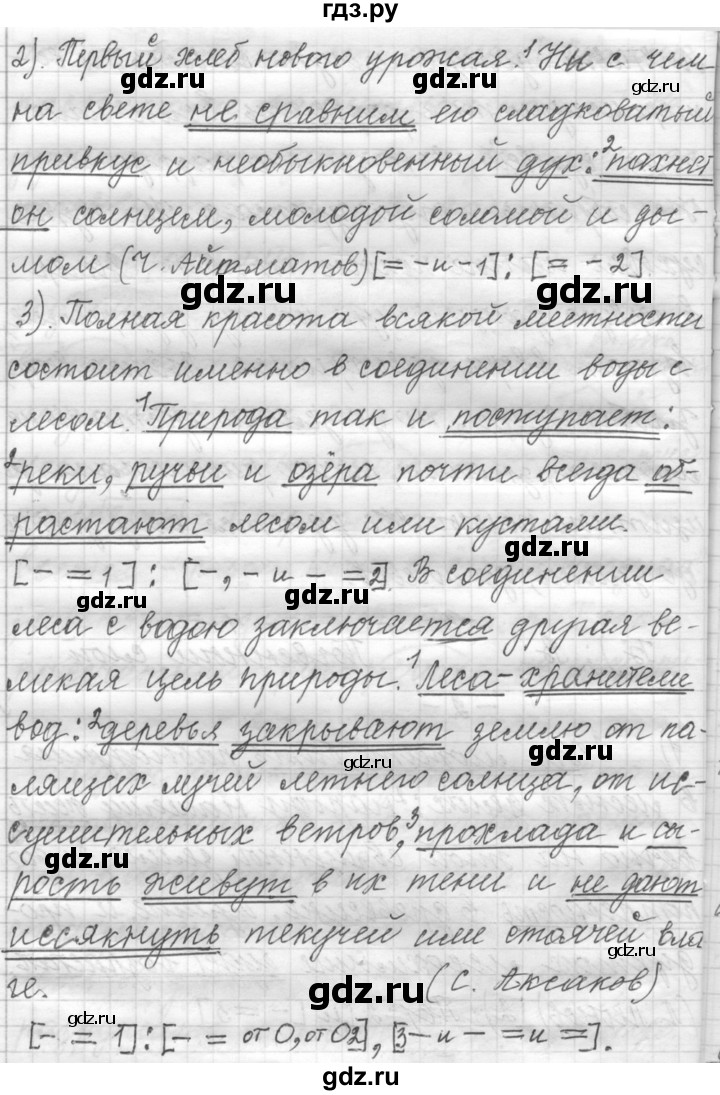 гдз.ру
2). Первый хлеб нового урожая. ¹Ни с чем
gdz.ru gdz.ru gdz.ru
на свете не сравним его сладковатый
привкус и необыкновенный дух: ²пахнет
gdz.ru gdz.ru
он солнцем, молодой соломой и ды-
мом (Ч. Айтматов) [= - и - 1] : [= - 2].
gdz.ru gdz.ru
3). Полная красота всякой местности
состоит именно в соединении воды с
gdz.ru gdz.ru
лесом. ¹Природа так и поступает:
gdz.ru
²реки, ручьи и озёра почти всегда об-
gdz.ru
растают лесом или кустами.
gdz.ru
[- = 1] : [-, - и - = 2]. В соединении
gdz.ru gdz.ru
леса с водою заключается другая ве-
ликая цель природы. ¹Леса - хранители
вод: ²деревья закрывают землю от па-
gdz.ru gdz.ru
лящих лучей летнего солнца, от ис-
сушительных ветров, ³прохлада и сы-
gdz.ru
рость живут в их тени и не дают
иссякнуть текучей или стоячей вла-
ге. (С. Аксаков)
gdz.ru gdz.ru
gdz.ru
[- = 1] : [- = от О, от О 2], [3 - и - = и =].
gdz.ru